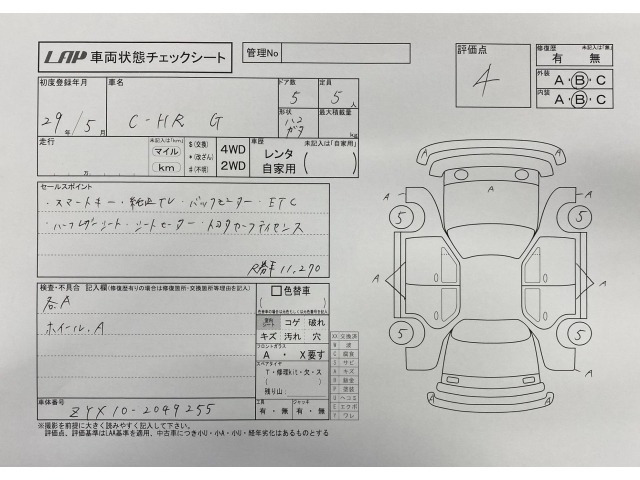 LAP 車両状態チェックシート
管理No
評価点
4
修復歴 未記入は「無」
有 無
外装
A・B・C
内装
A・B・C
初度登録年月
29年/5月
車名
C-HR G
ドア数
5
定員
5人
形状
ハコ
最大積載量
kg
走行
万
未記入は「km」
マイル
km
$(交換)
*(改ざん)
#(不明)
4WD
2WD
車歴 未記入は「自家用」
レンタ
自家用 ( )
セールスポイント
・スマートキー・純正TV・バックモニター・ETC
・ハーフレザーシート・シートヒーター・トヨタセーフティセンス
11,270
検査・不具合 記入欄 (修復歴有りの場合は修復箇所・交換箇所等理由を記入)
各A
ホイール、A
色替車
( )
コゲ 破れ
キズ 汚れ 穴
フロントガラス
A ・ X要す
スペアタイヤ
T・修理kit・欠・ス
( )
残り山:
工具
有・無
ジャッキ
有・無
XX 交換済
W 波
C 腐食
S サビ
A キズ
H 鈑金
P 塗装
U ヘコミ
E エクボ
Y ワレ
車体番号
ZYX10-2049255
※撮影を前提に大きく読みやすく記入して下さい。
評価点、評価基準はLAA基準を適用、中古車につき小U・小A・小U・経年劣化はあるものとする
A
A
A
A
A
5
5
A
A
5
5
A
A